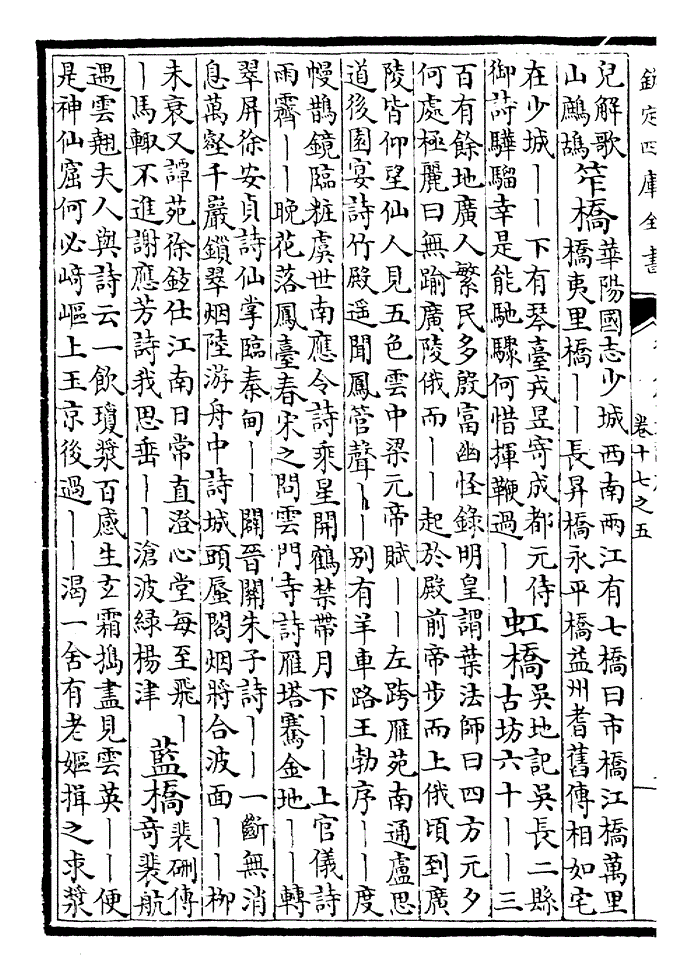 欽定四庫全書
卷十七之五
兒解歌
山鷓鴣
笮橋
華陽國志少城西南兩江有七橋曰市橋江橋萬里
橋夷里橋〡〡長昇橋永平橋益州耆舊傳相如宅
在少城〡〡下有琴臺戎昱寄成都元侍
御詩驊騮幸是能馳驟何惜揮鞭過〡〡
虹橋
吳地記吳長二縣
古坊六十〡〡三
百有餘地廣人繁民多殷富幽怪錄明皇謂葉法師曰四方元夕
何處極麗曰無踰廣陵俄而〡〡起於殿前帝步而上俄頃到廣
陵皆仰望仙人見五色雲中梁元帝賦〡〡左跨雁苑南通盧思
道後園宴詩竹殿遥聞鳳管聲〡〡别有羊車路王勃序〡〡度
幔鵲鏡臨粧虞世南應令詩乘星開鶴禁帶月下〡〡上官儀詩
雨霽〡〡晩花落鳳臺春宋之問雲門寺詩雁塔騫金地〡〡轉
翠屏徐安貞詩仙掌臨秦甸〡〡闢晉關朱子詩〡〡一斷無消
息萬壑千巖鎖翠烟陸游舟中詩城頭蜃閣烟將合波面〡〡柳
未衰又譚苑徐鉉仕江南日常直澄心堂每至飛〡
〡馬輙不進謝應芳詩我思垂〡〡滄波緑楊津
藍橋
裴硎傳
奇裴航
遇雲翹夫人與詩云一飲瓊漿百感生玄霜擣盡見雲英〡〡便
是神仙窟何必崎嶇上玉京後過〡〡渴一舍有老嫗揖之求漿